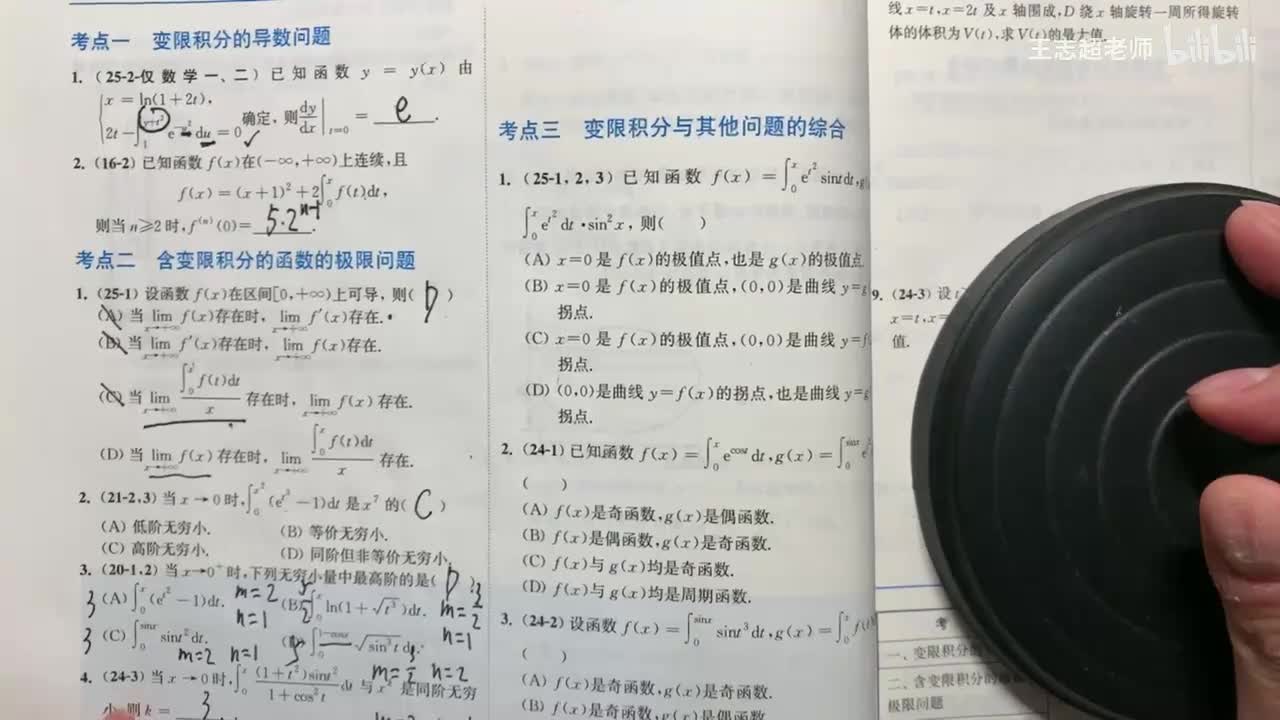 考点一 变限积分的导数问题
1. (25-2-仅数学一、二) 已知函数 y = y(x) 由
{ x = ln(1+2t),
2t - ∫_1 e du = 0 ✓ 确定, 则 dy/dx |_{t=0} = e .
2. (16-2) 已知函数 f(x) 在(-∞,+∞)上连续,且
f(x) = (x+1)² + 2∫_0^x f(t)dt,
则当 n≥2 时, f^(n)(0) = 5·2^{n-1} .
考点二 含变限积分的函数的极限问题
1. (25-1) 设函数 f(x) 在区间[0,+∞)上可导, 则( D )
(A) 当 lim_{x→+∞} f(x) 存在时, lim_{x→+∞} f′(x) 存在.
(B) 当 lim_{x→+∞} f′(x) 存在时, lim_{x→+∞} f(x) 存在.
(C) 当 lim_{x→+∞} ∫_0^x f(t)dt / x 存在时, lim_{x→+∞} f(x) 存在.
(D) 当 lim_{x→+∞} f(x) 存在时, lim_{x→+∞} ∫_0^x f(t)dt / x 存在.
2. (21-2,3) 当 x→0 时, ∫_0^{x²} (e^{t³} - 1)dt 是 x⁷ 的( C )
(A) 低阶无穷小. (B) 等价无穷小.
(C) 高阶无穷小. (D) 同阶但非等价无穷小.
3. (20-1,2) 当 x→0⁺ 时, 下列无穷小量中最高阶的是( D )
3 (A) ∫_0^x (e^{t²} - 1)dt. m=2 n=1 (B) ∫_0^x ln(1+√t³)dt. m=3/2 n=1
3 (C) ∫_0^{sinx} sint²dt. m=2 n=1 ∫_0^{1-cosx} √sin³t dt. n=2
4. (24-3) 当 x→0 时, ∫_0^x (1+t²)sint² / 1+cos²t dt 与 x 是同阶无穷
小, 则 k = 3
考点三 变限积分与其他问题的综合
1. (25-1,2,3) 已知函数 f(x) = ∫_0^x e^{t²} sint dt,
∫_0^x e^{t²} dt · sin²x, 则( )
(A) x=0 是 f(x) 的极值点,也是 g(x) 的极值点
(B) x=0 是 f(x) 的极值点,(0,0)是曲线 y=
拐点.
(C) x=0 是 f(x) 的极值点,(0,0)是曲线 y=
拐点.
(D) (0,0)是曲线 y=f(x) 的拐点,也是曲线 y=
拐点.
2. (24-1) 已知函数 f(x) = ∫_0^x e^{cost} dt, g(x) = ∫_0^{sinx}
( )
(A) f(x)是奇函数,g(x)是偶函数.
(B) f(x)是偶函数,g(x)是奇函数.
(C) f(x)与 g(x)均是奇函数.
(D) f(x)与 g(x)均是周期函数.
3. (24-2) 设函数 f(x) = ∫_0^{sinx} sint³dt, g(x) = ∫_0^x
( )
(A) f(x)是奇函数,g(x)是奇函数.
(B) f(x)是奇函数,g(x)是偶函数.
线 x=t,x=2t 及 x 轴围成,D 绕 x 轴旋转一周所得旋转
体的体积为 V(t),求 V(t)的最大值.
王志超老师 bilibili
9. (24-3) 设
x=t,x=
值.
考
一、变限积分
二、含变限积分的
极限问题